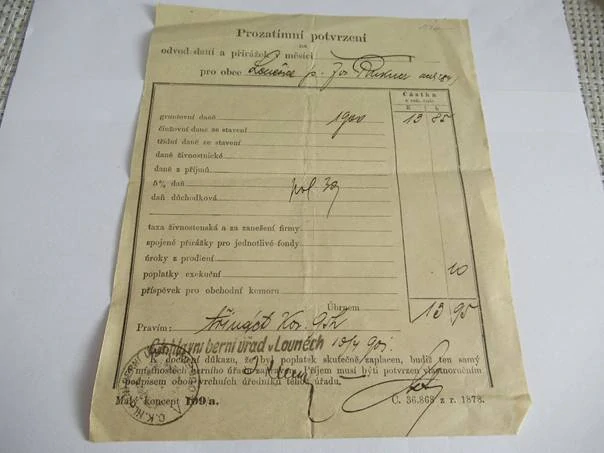 Prozatímní potvrzení
na
odvod daní a přirážek z měsíci
pro obec p. Jos
Částka
K h
gruntovní daně 1900 13 85
činžovní daně ze stavení
třídní daně ze stavení
daně živnostnické
daně z příjmů
5% daň pol 39
daň důchodková
taxa živnostenská a za zanešení firmy
spojené přirážky pro jednotlivé fondy
úroky z prodlení
poplatky exekuční 10
příspěvek pro obchodní komoru
Úhrnem 13 95
Pravím: třináct Kor. 95h
C.k. hlavní berní úřad v Lounech 10/4 901
K docílení důkazu, že byl poplatek skutečně zaplacen, budiž ten samý
v místnostech berního úřadu zapraven. Příjem musí býti potvrzen vlastnoručním
podpisem obou vrchních úředníků téhož úřadu.
Malý koncept 199/a. Č. 36.868 z r. 1878.